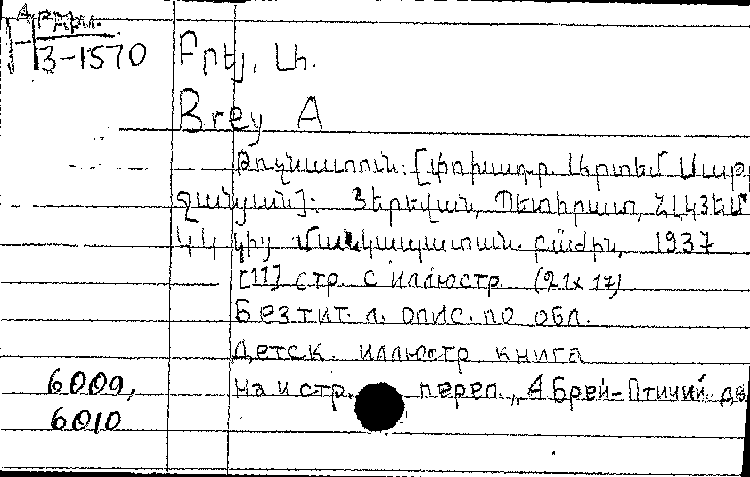 Арм.
3-1570
Բրեյ, Ա.
Brey A
Թռչնատուն: [Փոխադր. Արտեմ Սար
ջանյան]: Յերևան, Պետհրատ, ՀԼԿՅԵՄ
ԿԿ կից մանկապատան. բաժին, 1937
[11] стр. с иллюстр (21x17)
Без тит. л. опис. по обл.
Детск. иллюстр. книга
6009,
На и стр. перев. „А Брей-Птичий до
6010